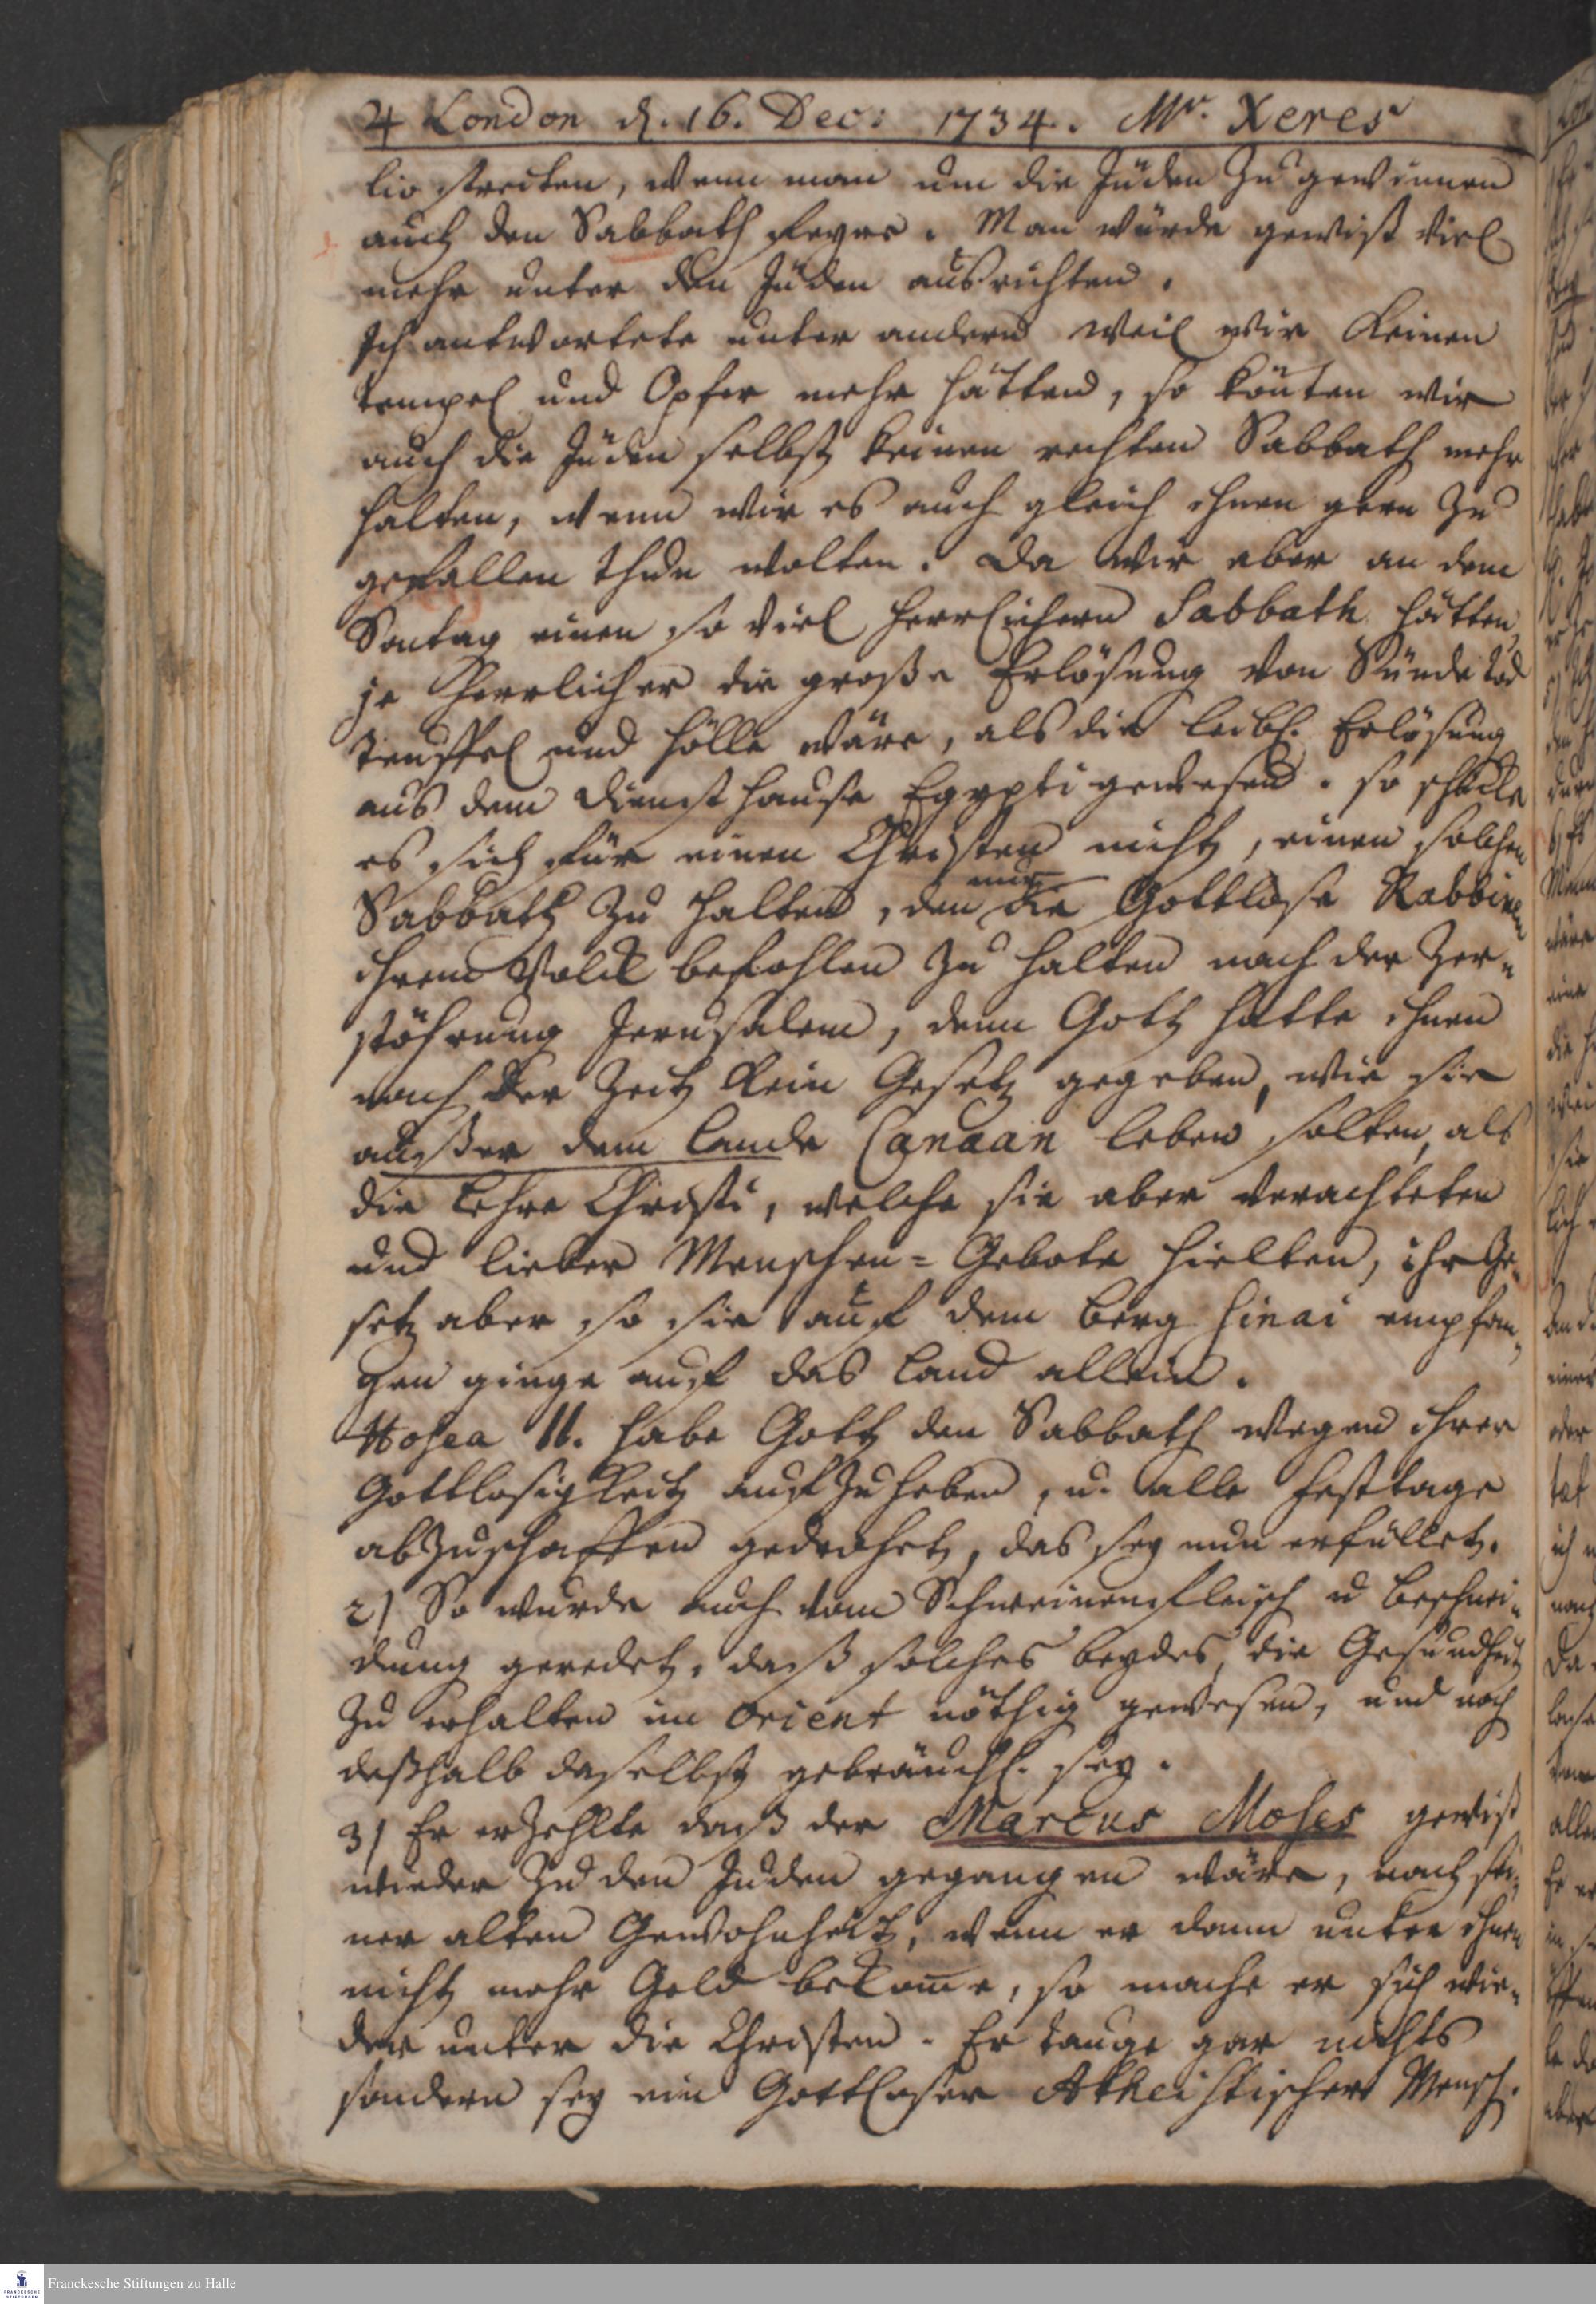 4 London d. 16. Dec: 1734. Mr. Xeres
lio streiten, wenn man um die Juden zu gewinnen
auch den Sabbath feyre. Man würde gewiß viel
mehr unter den Juden ausrichten.
Ich antwortete unter andern weil wir keinen
tempel und Opfer mehr hätten, so könten wir
auch die Juden selbst keinen rechten Sabbath mehr
halten, wenn wir es auch gleich ihnen gern zu
gefallen thun wolten. Da wir aber an dem
Sontag einen so viel herrlichern Sabbath hätten,
je herrlicher die große Erlösung von Sünde tod
teuffel und Hölle wäre, als die leibl. Erlösung
aus dem Diensthause Egypti gewesen. so schicke
es sich für einen Christen nicht, einen solchen
Sabbath zu halten, den nur die Gottlose Rabbinen
ihrem Volck befohlen zu halten nach der Zer-
stöhrung Jerusalem, denn Gott hatte ihnen
nach der Zeit kein Gesetz gegeben, wie sie
außer dem Lande Canaan leben solten, als
die Lehre Christi, welche sie aber verachteten
und lieber Menschen-Gebote hielten, ihr Ge-
setz aber so sie auf dem Berg Sinai empfan-
gen ginge auf das Land allein.
Hosea 11. habe Gott den Sabbath wegen ihrer
Gottlosigkeit aufzuheben, u. alle Festtage
abzuschaffen gedrohet, das sey nun erfüllet.
2) So wurde auch vom Schweinenfleisch u Beschnei-
dung geredet, daß solches beydes, die Gesundheit
zu erhalten im Orient nöthig gewesen, und noch
deßhalb daselbst gebräuchl. sey.
3) Er erzehlte daß der Marcus Moses gewiß
wieder zu den Juden gegangen wäre, nach sei-
ner alten Gewohnheit, wenn er dann unter ihnen
nicht mehr Geld bekom̅e, so mache er sich wie-
der unter die Christen. Er tauge gar nichts
sondern sey ein Gottloser Atheistischer Mensch.
Franckesche Stiftungen zu Halle